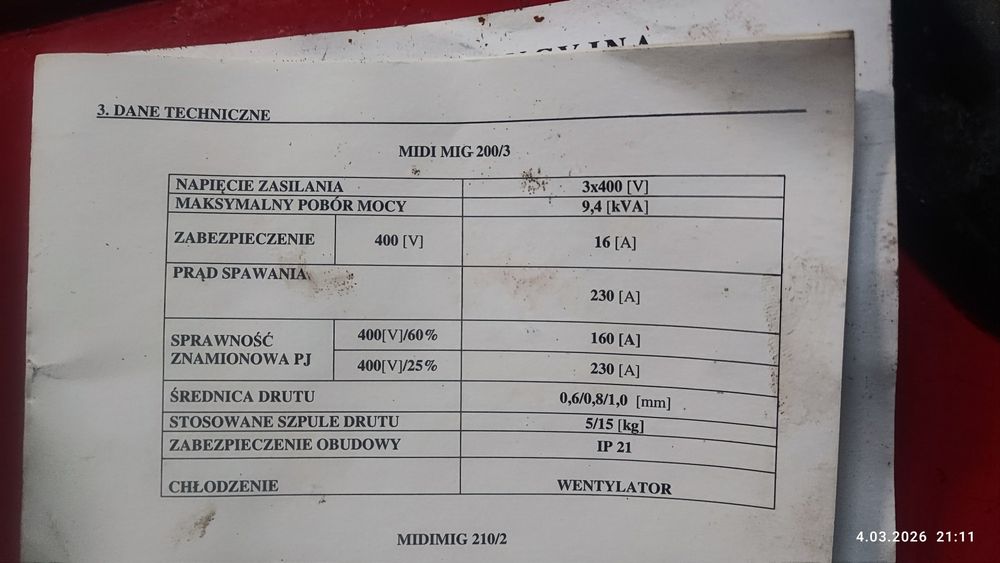 3. DANE TECHNICZNE
MIDI MIG 200/3
NAPIĘCIE ZASILANIA 3x400 [V]
MAKSYMALNY POBÓR MOCY 9,4 [kVA]
ZABEZPIECZENIE 400 [V] 16 [A]
PRĄD SPAWANIA 230 [A]
SPRAWNOŚĆ ZNAMIONOWA PJ 400[V]/60% 160 [A]
400[V]/25% 230 [A]
ŚREDNICA DRUTU 0,6/0,8/1,0 [mm]
STOSOWANE SZPULE DRUTU 5/15 [kg]
ZABEZPIECZENIE OBUDOWY IP 21
CHŁODZENIE WENTYLATOR
MIDIMIG 210/2
4.03.2026 21:11